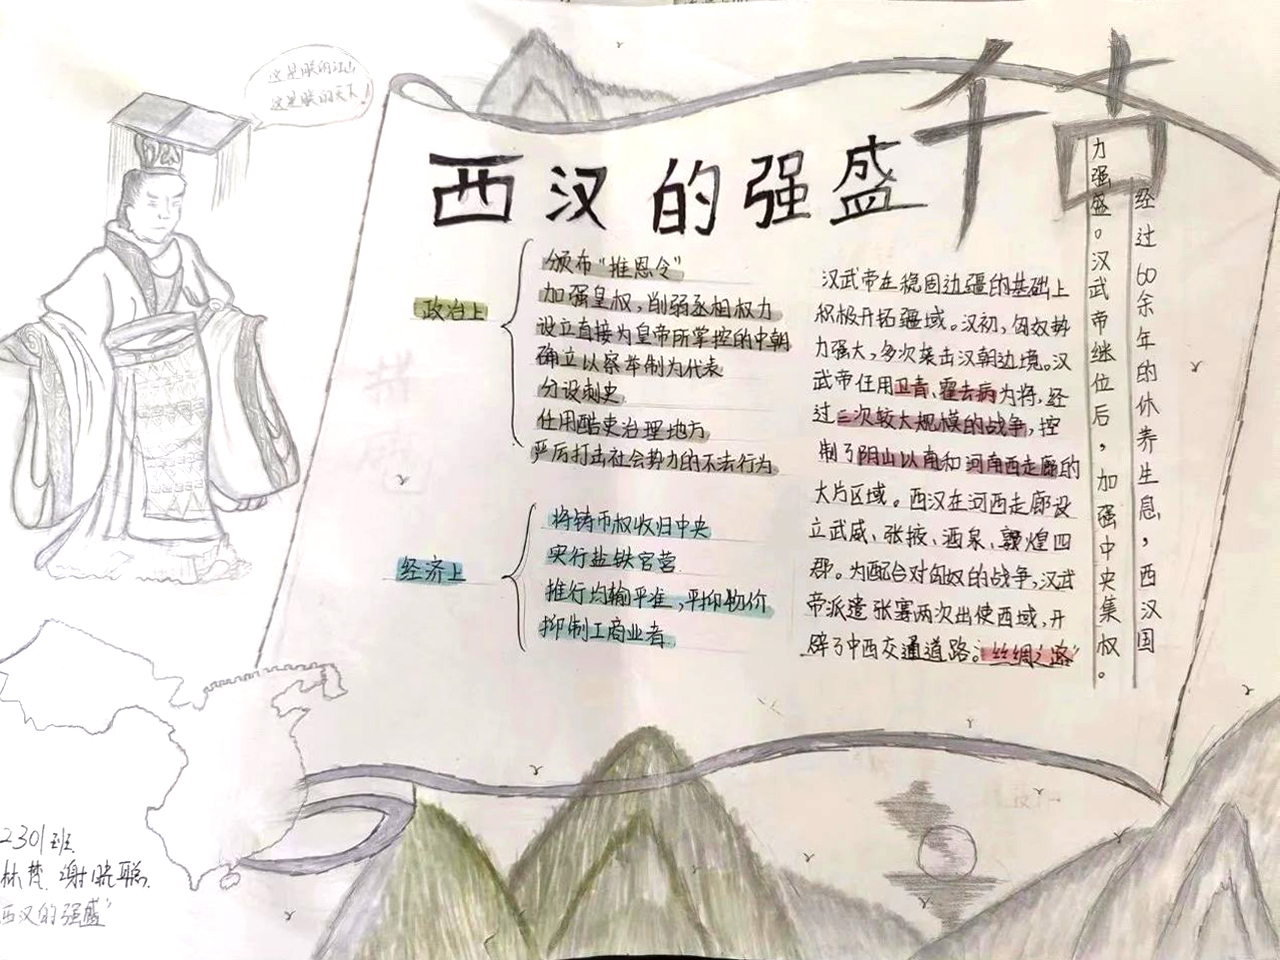 这是朕的江山
这是朕的天下!
西汉的强盛
千古
政治上
颁布“推恩令”
加强皇权,削弱丞相权力
设立直接为皇帝所掌控的中朝
确立以察举制为代表
分设刺史
任用酷吏治理地方
严厉打击社会势力的不法行为
经济上
将铸币权收归中央
实行盐铁官营
推行均输平准,平抑物价
抑制工商业者
汉武帝在稳固边疆的基础上
积极开拓疆域。汉初,匈奴势
力强大,多次袭击汉朝边境。汉
武帝任用卫青、霍去病为将,经
过三次较大规模的战争,控
制了阴山以南和河南西走廊的
大片区域。西汉在河西走廊设
立武威、张掖、酒泉、敦煌四
郡。为配合对匈奴的战争,汉武
帝派遣张骞两次出使西域,开
辟了中西交通道路。“丝绸之路”
经过60余年的休养生息,西汉国
力强盛。汉武帝继位后,加强中央集权。
2301班
林梵 谢晓聪
西汉的强盛”